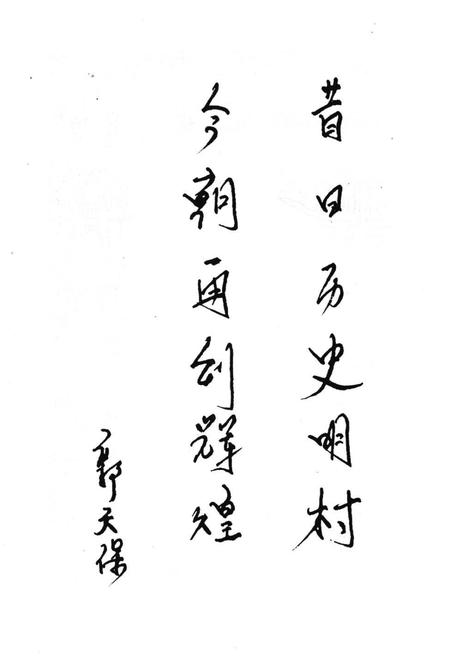 昔日历史明村
今朝再创辉煌
郭天保